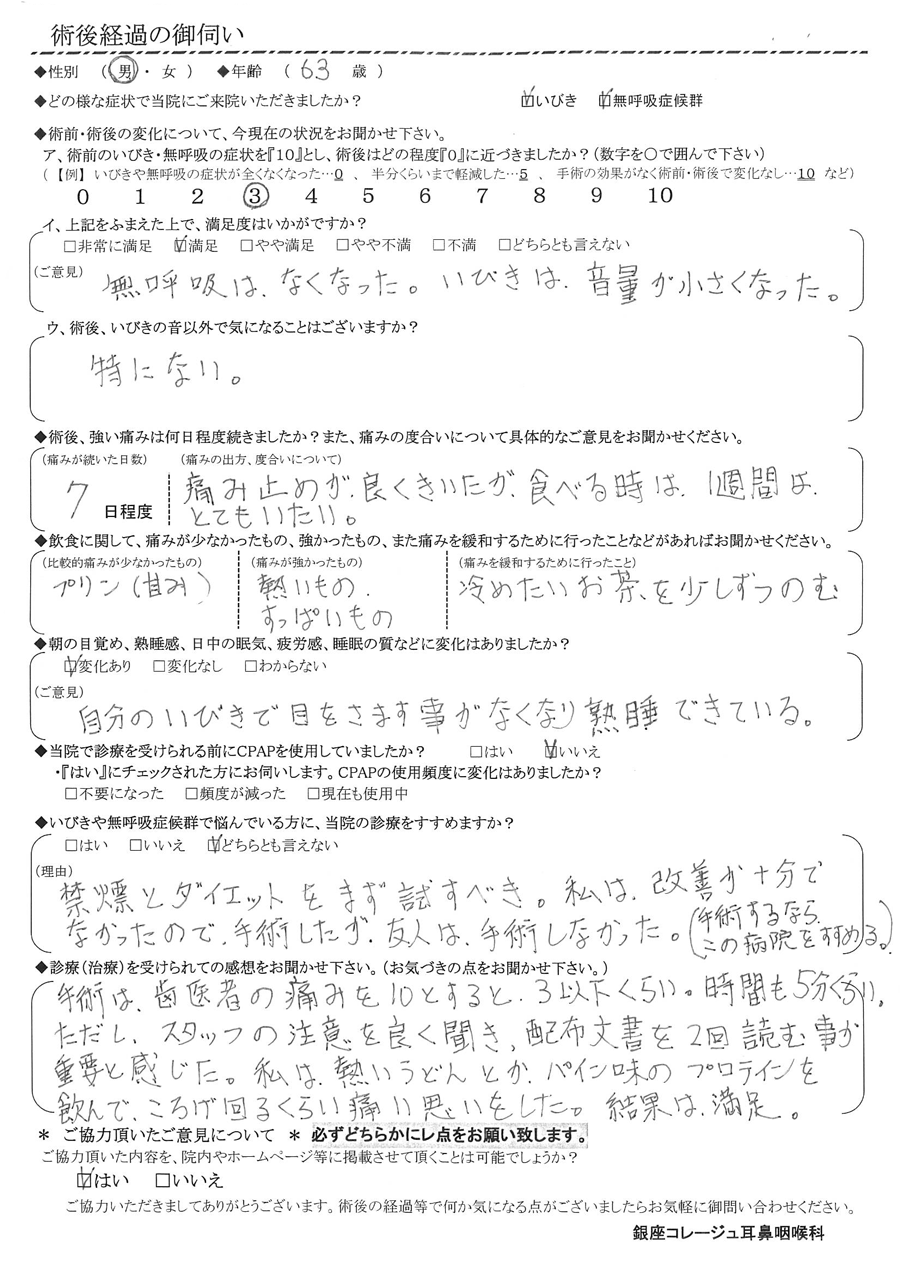 術後経過の御伺い
◆性別 （ 男 ・ 女 ） ◆年齢 （ 63 歳 ）
◆どの様な症状で当院にご来院いただきましたか？ ☑いびき ☑無呼吸症候群
◆術前・術後の変化について、今現在の状況をお聞かせ下さい。
ア、術前のいびき・無呼吸の症状を『10』とし、術後はどの程度『0』に近づきましたか？（数字を〇で囲んで下さい）
（【例】いびきや無呼吸の症状が全くなくなった…0 、 半分くらいまで軽減した…5 、 手術の効果がなく術前・術後で変化なし…10 など）
0 1 2 3 4 5 6 7 8 9 10
イ、上記をふまえた上で、満足度はいかがですか？
□非常に満足 ☑満足 □やや満足 □やや不満 □不満 □どちらとも言えない
（ご意見） 無呼吸は、なくなった。いびきは、音量が小さくなった。
ウ、術後、いびきの音以外で気になることはございますか？
特にない。
◆術後、強い痛みは何日程度続きましたか？また、痛みの度合いについて具体的なご意見をお聞かせください。
（痛みが続いた日数） （痛みの出方、度合いについて）
7 日程度 痛み止めが、良くきいたが、食べる時は、1週間は、
とてもいたい。
◆飲食に関して、痛みが少なかったもの、強かったもの、また痛みを緩和するために行ったことなどがあればお聞かせください。
（比較的痛みが少なかったもの） （痛みが強かったもの） （痛みを緩和するために行ったこと）
プリン（甘み） 熱いもの、 冷めたいお茶、を少しずつのむ
すっぱいもの
◆朝の目覚め、熟睡感、日中の眠気、疲労感、睡眠の質などに変化はありましたか？
☑変化あり □変化なし □わからない
（ご意見）
自分のいびきで目をさます事がなくなり熟睡できている。
◆当院で診療を受けられる前にCPAPを使用していましたか？ □はい ☑いいえ
・『はい』にチェックされた方にお伺いします。CPAPの使用頻度に変化はありましたか？
□不要になった □頻度が減った □現在も使用中
◆いびきや無呼吸症候群で悩んでいる方に、当院の診療をすすめますか？
□はい □いいえ ☑どちらとも言えない
（理由）
禁煙とダイエットをまず試すべき。私は、改善が十分で
なかったので、手術したが、友人は、手術しなかった。（手術するなら、
この病院をすすめる。）
◆診療（治療）を受けられての感想をお聞かせ下さい。（お気づきの点をお聞かせ下さい。）
手術は、歯医者の痛みを10とすると、3以下くらい。時間も5分くらい。
ただし、スタッフの注意を良く聞き、配布文書を2回読む事が
重要と感じた。私は、熱いうどんとか、パイン味のプロテインを
飲んで、ころげ回るくらい痛い思いをした。結果は、満足。
＊ ご協力頂いたご意見について ＊ 必ずどちらかにレ点をお願い致します。
ご協力頂いた内容を、院内やホームページ等に掲載させて頂くことは可能でしょうか？
☑はい □いいえ
ご協力いただきましてありがとうございます。術後の経過等で何か気になる点がございましたらお気軽に御問い合わせください。
銀座コレージュ耳鼻咽喉科